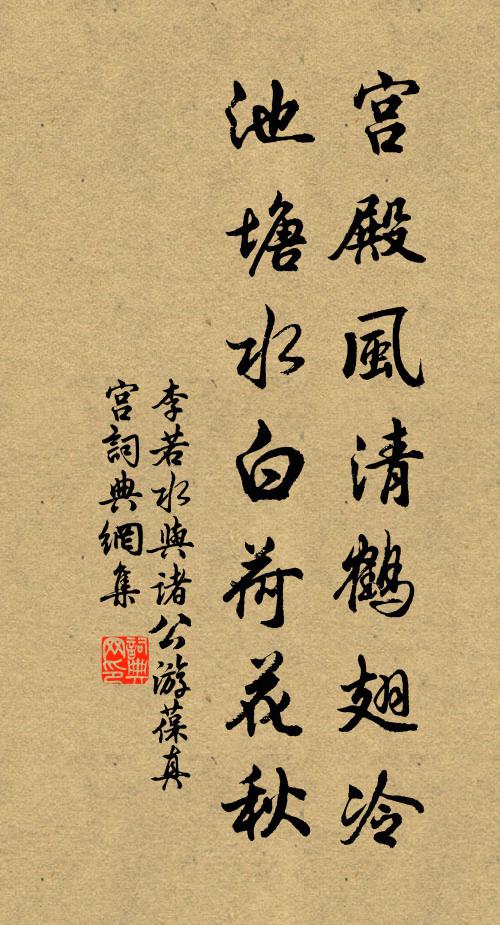 宫殿風清鶴翅冷
池塘水白荷花秋
李若水與諸公游葆真
宫詞典網集
詞典网印